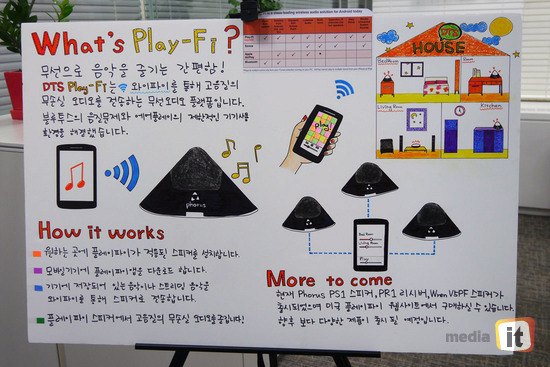 What's Play-Fi?
무선으로 음악을 즐기는 간편함!
DTS Play-Fi는 와이파이를 통해 고음질의
무손실 오디오를 전송하는 무선오디오 플랫폼입니다.
블루투스의 음질문제와 에어플레이의 제한적인 기기사용
환경을 해결했습니다.
phorus
DTS
HOUSE
Living Room
Kitchen
How it works
원하는 곳에 플레이파이가 적용된 스피커를 설치합니다.
모바일기기에 플레이파이앱을 다운로드 합니다.
기기에 저장되어 있는음악이나 스트리밍 음악을
와이파이를 통해 스피커로 전송합니다.
플레이파이 스피커에서 고음질의 무손실 오디오를 즐깁니다!
Bed Room
Living Room
Play
More to come
현재 Phorus PS1 스피커, PR1 리시버, Wren V5PF 스피커가
출시되었으며 미국 플레이파이 웹사이트에서 구매하실 수 있습니다.
향후 보다 다양한 제품이 출시 될 예정입니다.
media it